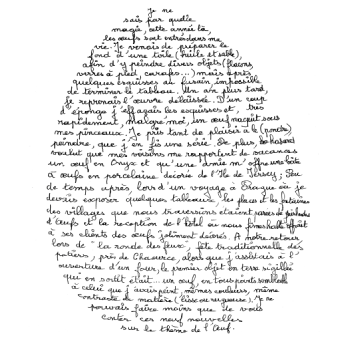 Je ne
sais par quelle
magie, cette année là,
les œufs sont entrés dans ma
vie. Je venais de préparer le
fond d'une toile (huile et sable),
afin d'y peindre divers objets (flacons,
verres à pied, carafes...) mais après
quelques esquisses au fusain impossible
de terminer le tableau. Un an plus tard,
je reprenais l'œuvre délaissée. D'un coup
d'éponge j'effaçais les esquisses et, très
rapidement, malgré moi, un œuf naquit sous
mes pinceaux. Je pris tant de plaisir à le (pondre)
peindre, que j'en fis une série. De plus, le hasard
voulut que mes voisins me rapportent de vacances
un œuf en Onyx et qu'une amie m'offre une boîte
à œufs en porcelaine décorée de l'Ile de Jersey; Peu
de temps après lors d'un voyage à Prague où je
devais exposer quelques tableaux, les places et les fontaines
des villages que nous traversions étaient parées de guirlandes
d'œufs et la réception de l'hôtel où nous offrait
à ses clients des œufs joliment décorés. A notre retour
lors de "la ronde des feux", fête traditionnelle des
potiers, près de Chaource, alors que j'assistais à l'
ouverture d'un four, le premier objet en terre sigillée
qui en sortit était... un œuf, en tous points semblable
à celui que j'avais peint, mêmes couleurs, même
contraste de matière (lisse ou rugueuse). Je ne
pouvais faire moins que de vous
conter ces neuf nouvelles
sur le thème de l'Œuf.